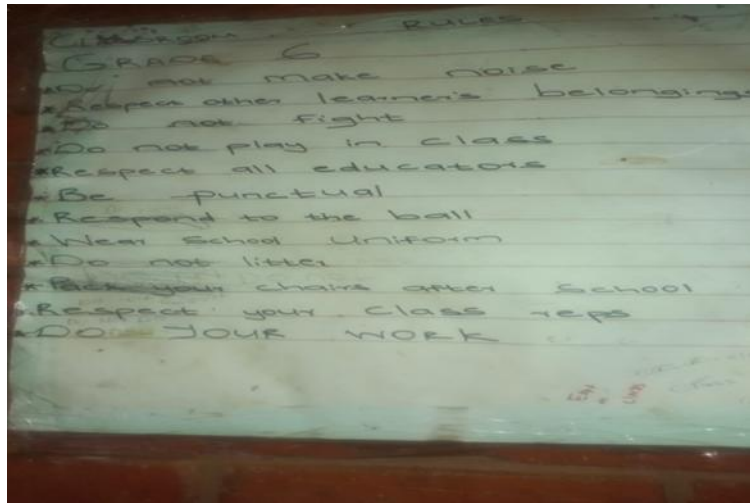 CLASSROOM RULES
GRADE 6
* Do not make noise
* Respect other learner's belongings
* Do not fight
* Do not play in class
* Respect all educators
* Be punctual
* Respond to the ball
* Wear School Uniform
* Do not litter
* Pack your chairs after School
* Respect your class reps
* DO YOUR WORK